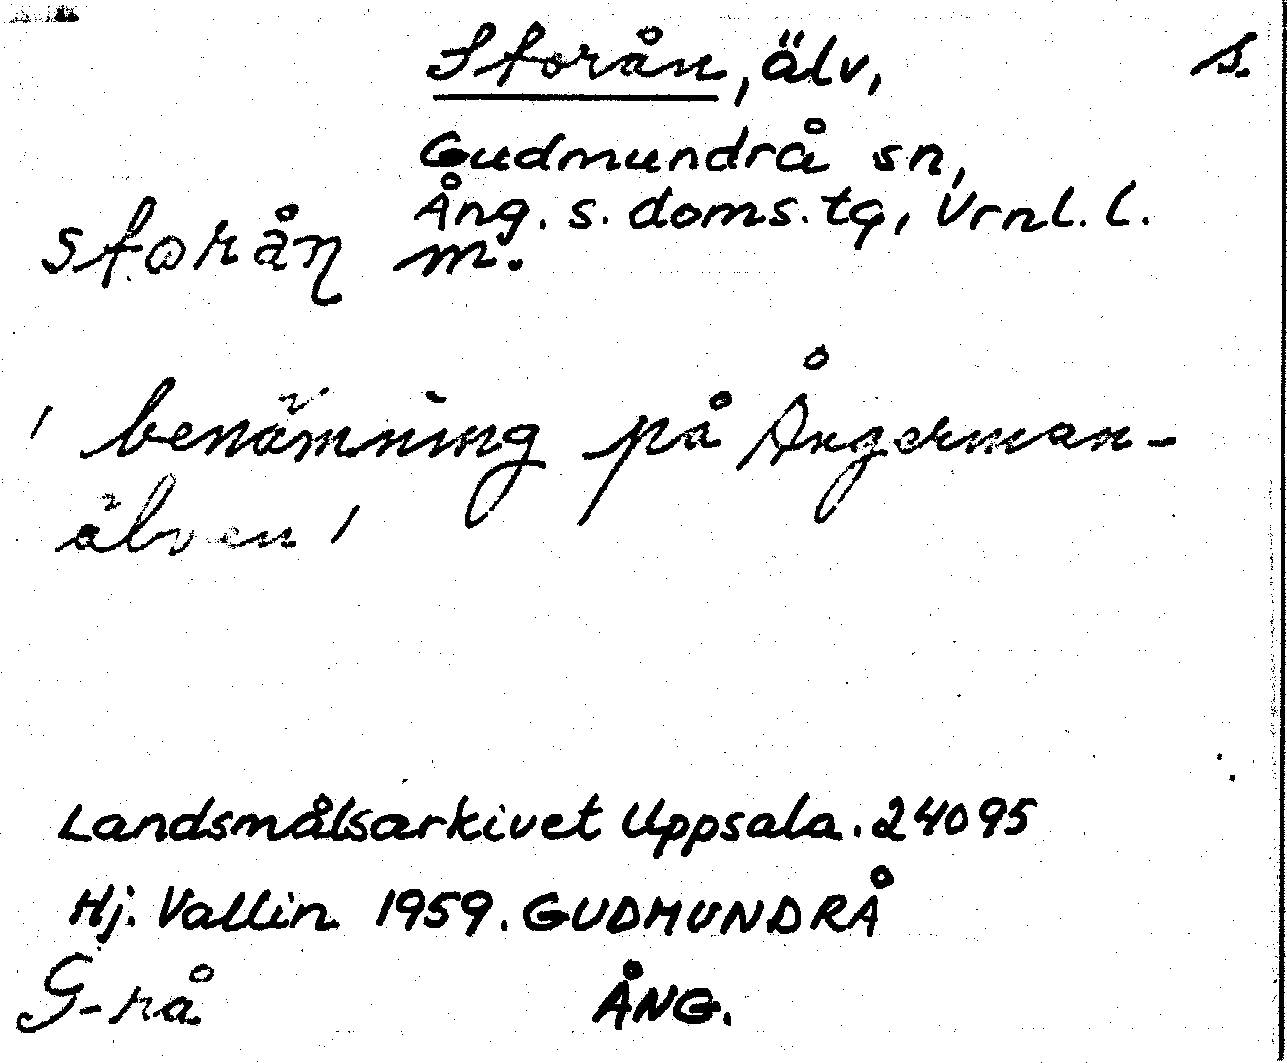 Storån, älv, s.
Gudmundrå sn,
Ång. s. doms. tg, Vrnl. l.
storån m.
/ benämning på Ångerman-
älven /
Landsmålsarkivet Uppsala. 24095
Hj. Vallin 1959. GUDMUNDRÅ
G-rå ÅNG.